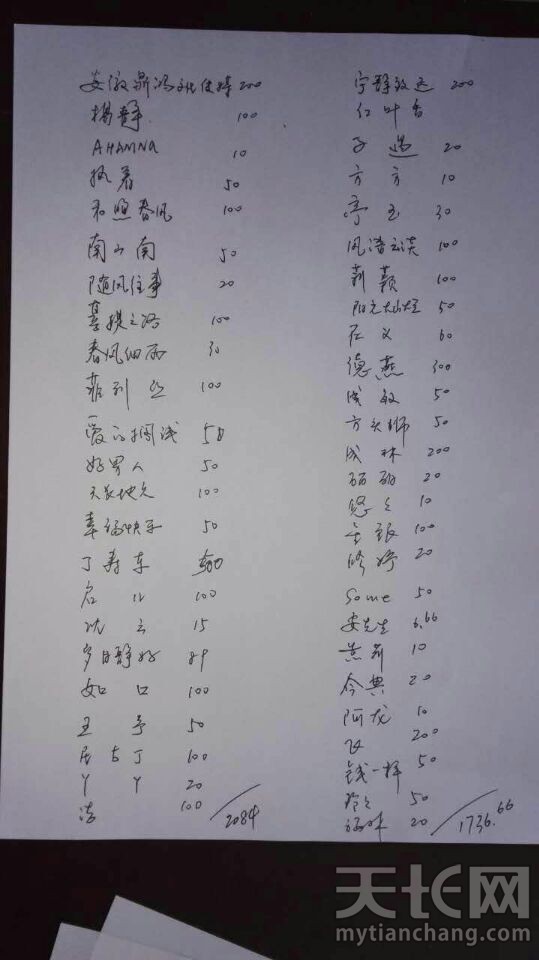 安徽鼎鸿文化传播 200
杨静 100
AHAMNA 10
执着 50
和煦春风 100
南山南 50
随风往事 20
喜捷之路 100
春风细雨 30
菲利丝 100
爱的搁浅 50
好男人 50
天长地久 100
幸福快乐 50
丁寿东
启儿 100
沈云 15
岁月静好 89
如口 100
王予 50
居士丁 100
丫丫 20
洁 100
2084
宁静致远 200
红叶舌
子涵 20
方方 10
亭玉 30
风清云淡 100
莉颖 100
阳光灿烂 50
仁义 60
德燕 300
成敏 50
方头狮 50
成林 200
丽丽 20
悠悠 10
金银 100
修婷 20
Some 50
安先生 6.66
黄莉 10
今典 20
阿龙 10
飞 200
钱一样 50
玲玲 50
20
1736.66
天长网
mytianchang.com